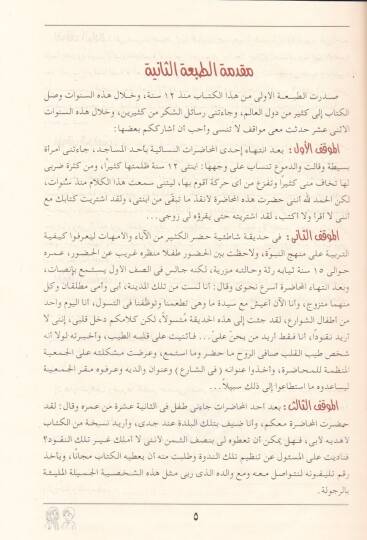 مقدمة الطبعة الثانية
صدرت الطبعة الأولى من هذا الكتاب منذ ١٢ سنة، وخلال هذه السنوات وصل
الكتاب إلى كثير من دول العالم، وجاءتنى رسائل الشكر من كثيرين، وخلال هذه السنوات
الاثنى عشر حدثت معى مواقف لا تنسى وأحب أن أشارككم بعضها:
الموقف الأول: بعد انتهاء إحدى المحاضرات النسائية بأحد المساجد، جاءتنى امرأة
بسيطة وقالت والدموع تنساب على وجهها: ابنتى ١٢ سنة ظلمتها كثيرًا، ومن كثرة ضربى
لها تخاف منى كثيرًا وتفزع من أى حركة أقوم بها، ليتنى سمعت هذا الكلام منذ سنوات،
لكن الحمد لله أننى حضرت هذه المحاضرة لأنقذ ما تبقى من ابنتى، ولقد اشتريت كتابك مع
أننى لا أقرأ ولا أكتب، لقد اشتريته حتى يقرؤه لى زوجى...
الموقف الثانى: فى حديقة شاطئية حضر الكثير من الآباء والأمهات ليعرفوا كيفية
التربية على منهج النبوة، ولاحظت بين الحضور طفلا منظره غريب عن الحضور، عمره
حوالى ١٥ سنة ثيابه رثة وحالته مزرية، لكنه جالس فى الصف الأول يستمع بإنصات،
وبعد انتهاء المحاضرة أسرع نحوى وقال: أنا لست من تلك المدينة، أبى وأمى مطلقان وكل
منهما متزوج، وأنا الآن أعيش مع سيدة ما وهى تطعمنا وتوظفنا فى التسول، أنا اليوم واحد
من أطفال الشوارع، لقد جئت إلى هذه الحديقة متسولا، لكن كلامكم دخل قلبى، إننى لا
أريد نقودًا، أنا فقط أريد من يحن علىّ... فأثنيت على قلبه الطيب، وأخبرته لولا أنه
شخص طيب القلب صافى الروح ما حضر وما استمع، وعرضت مشكلته على الجمعية
المنظمة للمحاضرة، وأخذوا عنوانه (فى الشارع) وعنوان والديه وعرفوه مقر الجمعية
ليساعدوه ما استطاعوا إلى ذلك سبيلا...
الموقف الثالث: بعد أحد المحاضرات جاءنى طفل فى الثانية عشرة من عمره وقال: لقد
حضرت المحاضرة معكم، وأنا ضيف بتلك البلدة عند جدى، وأريد نسخة من الكتاب
لأهديه لأبى، فهل يمكن أن تعطوه لى بنصف الثمن لأننى لا أملك غير تلك النقود؟
فناديت على المسئول عن تنظيم تلك الندوة وطلبت منه أن يعطيه الكتاب مجانًا، ويأخذ
رقم تليفونه لنتواصل معه ومع والده الذى ربى مثل هذه الشخصية الجميلة المليئة
بالرجولة.
٥